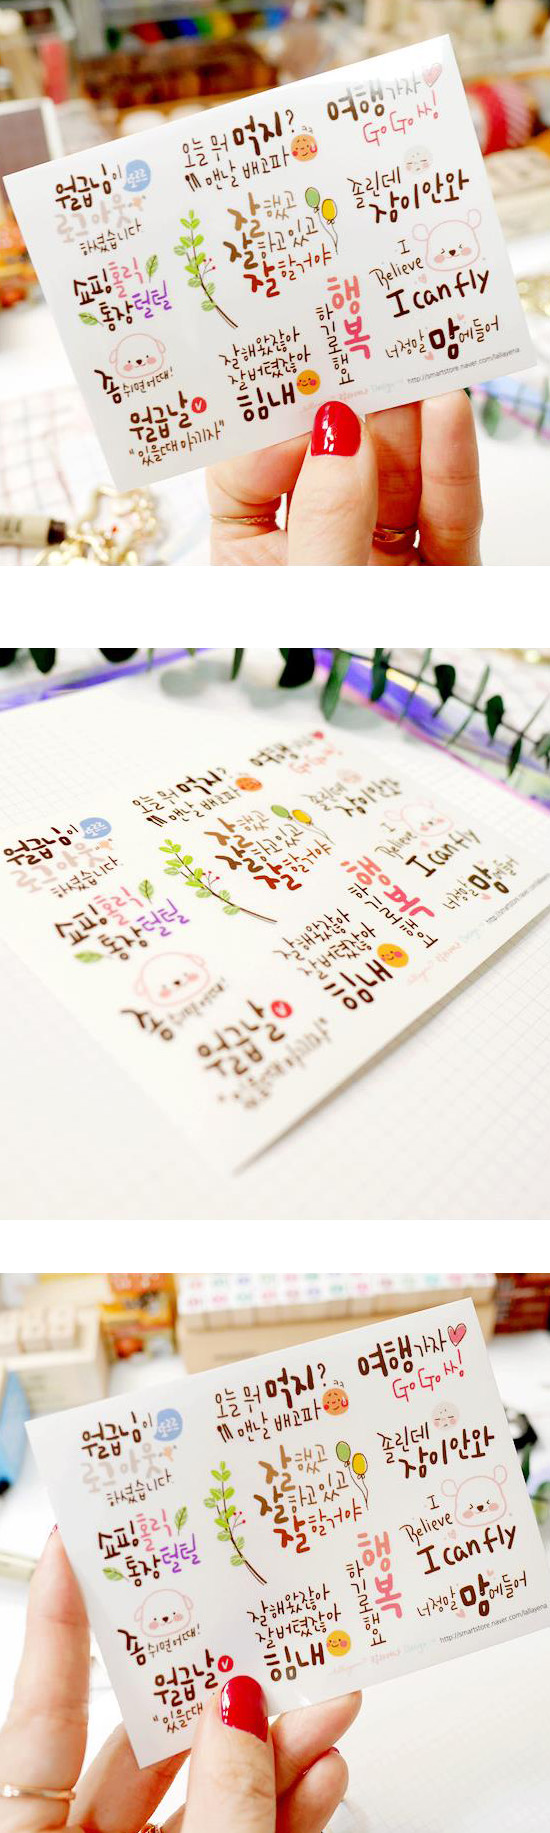 월급님이
또르르
로그아웃
하셨습니다
쇼핑홀릭
통장털털
좀 쉬면어때!
월급날
"있을때 아끼자"
오늘 뭐 먹지?
맨날 배고파
잘했고
잘하고있고
잘할거야
잘해왔잖아
잘버텼잖아
힘내
행복
하기로해요
여행가자
GO GO 싸!
졸린데
잠이안와
I
Believe
I can fly
너정말 맘에들어
http://smartstore.naver.com/lallayena
오늘 뭐 먹지?
맨날 배고파
여행가자
GO GO 싸!
월급님이
로그아웃
하셨습니다
쇼핑홀릭
통장털털
좀 쉬면어때!
월급날
"있을때 아끼자"
잘했고
잘하고있고
잘할거야
졸린데
잠이안와
I
Believe
I can fly
행복
하기로해요
너정말 맘에들어
잘해왔잖아
잘버텼잖아
힘내
월급님이
또르르
로그아웃
하셨습니다
쇼핑홀릭
통장털털
좀 쉬면어때!
월급날
"있을때
오늘 뭐 먹지?
맨날 배고파
잘했고
잘하고있고
잘할거야
잘해왔잖아
잘버텼잖아
힘내
행복
하기로해요
여행가자
GO GO 싸!
졸린데
잠이안와
I
Believe
I can fly
너정말 맘에들어
http://smartstore.naver.com/lallayena